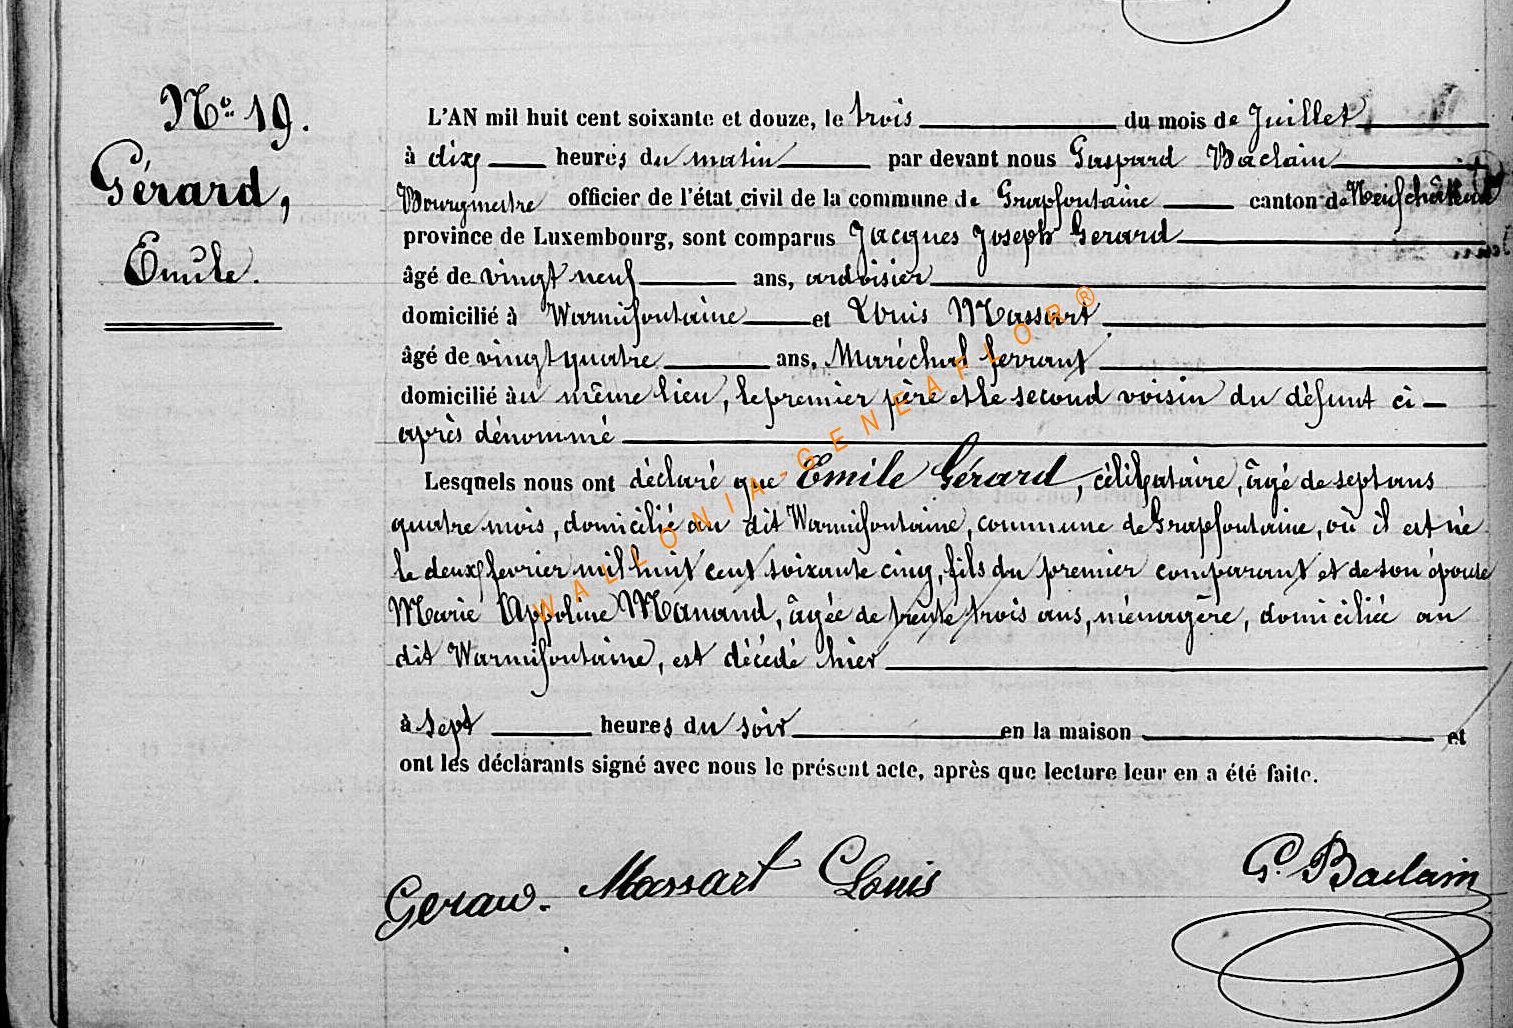 No. 19.
Gérard,
Emile.
L'AN mil huit cent soixante et douze, le trois du mois de Juillet
à dix heures du matin par devant nous Gaspard Baclain
Bourgmestre officier de l'état civil de la commune de Grapfontaine canton de Neufchâteau
province de Luxembourg, sont comparus Jacques Joseph Gerard
âgé de vingt neuf ans, ardoisier
domicilié à Warmifontaine et Louis Massart
âgé de vingt quatre ans, Maréchal ferrant
domicilié au même lieu, le premier père et le second voisin du défunt ci-
après dénommé
Lesquels nous ont déclaré que Emile Gérard, célibataire, âgé de sept ans
quatre mois, domicilié au dit Warmifontaine, commune de Grapfontaine, où il est né
le deux fevrier mil huit cent soixante cinq, fils du premier comparant et de son épouse
Marie Appoline Manand, âgée de trente trois ans, ménagère, domiciliée au
dit Warmifontaine, est décédé hier
à sept heures du soir en la maison et
ont les déclarants signé avec nous le présent acte, après que lecture leur en a été faite.
Gerard. Massart Louis G. Baclain
WALLONIA-GENEAFLOR®